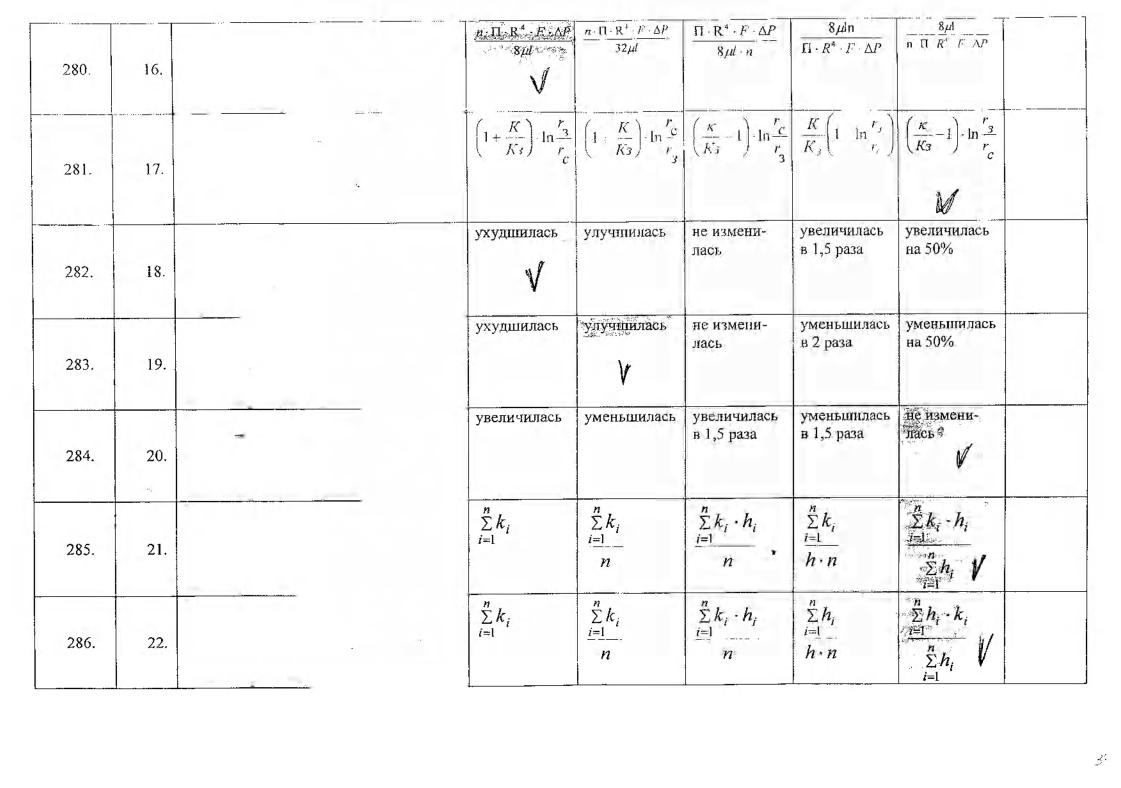 280. 16. n·П·R⁴·F·ΔP / 8μl V n·П·R⁴·F·ΔP / 32μl П·R⁴·F·ΔP / 8μl·n 8μln / П·R⁴·F·ΔP 8μl / n П R⁴ F ΔP
281. 17. (1 + K/Kз)·ln rз/rс (1 K/Kз)·ln rс/rз (к/Kз - 1)·ln rс/rз K/Kз (1 ln r) (к/Kз - 1)·ln rз/rс V
282. 18. ухудшилась V улучшилась не измени-
лась увеличилась
в 1,5 раза увеличилась
на 50%
283. 19. ухудшилась улучшилась V не измени-
лась уменьшилась
в 2 раза уменьшилась
на 50%
284. 20. увеличилась уменьшилась увеличилась
в 1,5 раза уменьшилась
в 1,5 раза не измени-
лась V
285. 21. ∑ⁿᵢ₌₁ kᵢ ∑ⁿᵢ₌₁ kᵢ / n ∑ⁿᵢ₌₁ kᵢ·hᵢ / n ∑ⁿᵢ₌₁ kᵢ / h·n ∑ⁿᵢ₌₁ kᵢ·hᵢ / ∑ⁿᵢ₌₁ hᵢ V
286. 22. ∑ⁿᵢ₌₁ kᵢ ∑ⁿᵢ₌₁ kᵢ / n ∑ⁿᵢ₌₁ kᵢ·hᵢ / n ∑ⁿᵢ₌₁ hᵢ / h·n ∑ⁿᵢ₌₁ hᵢ·kᵢ / ∑ⁿᵢ₌₁ hᵢ V